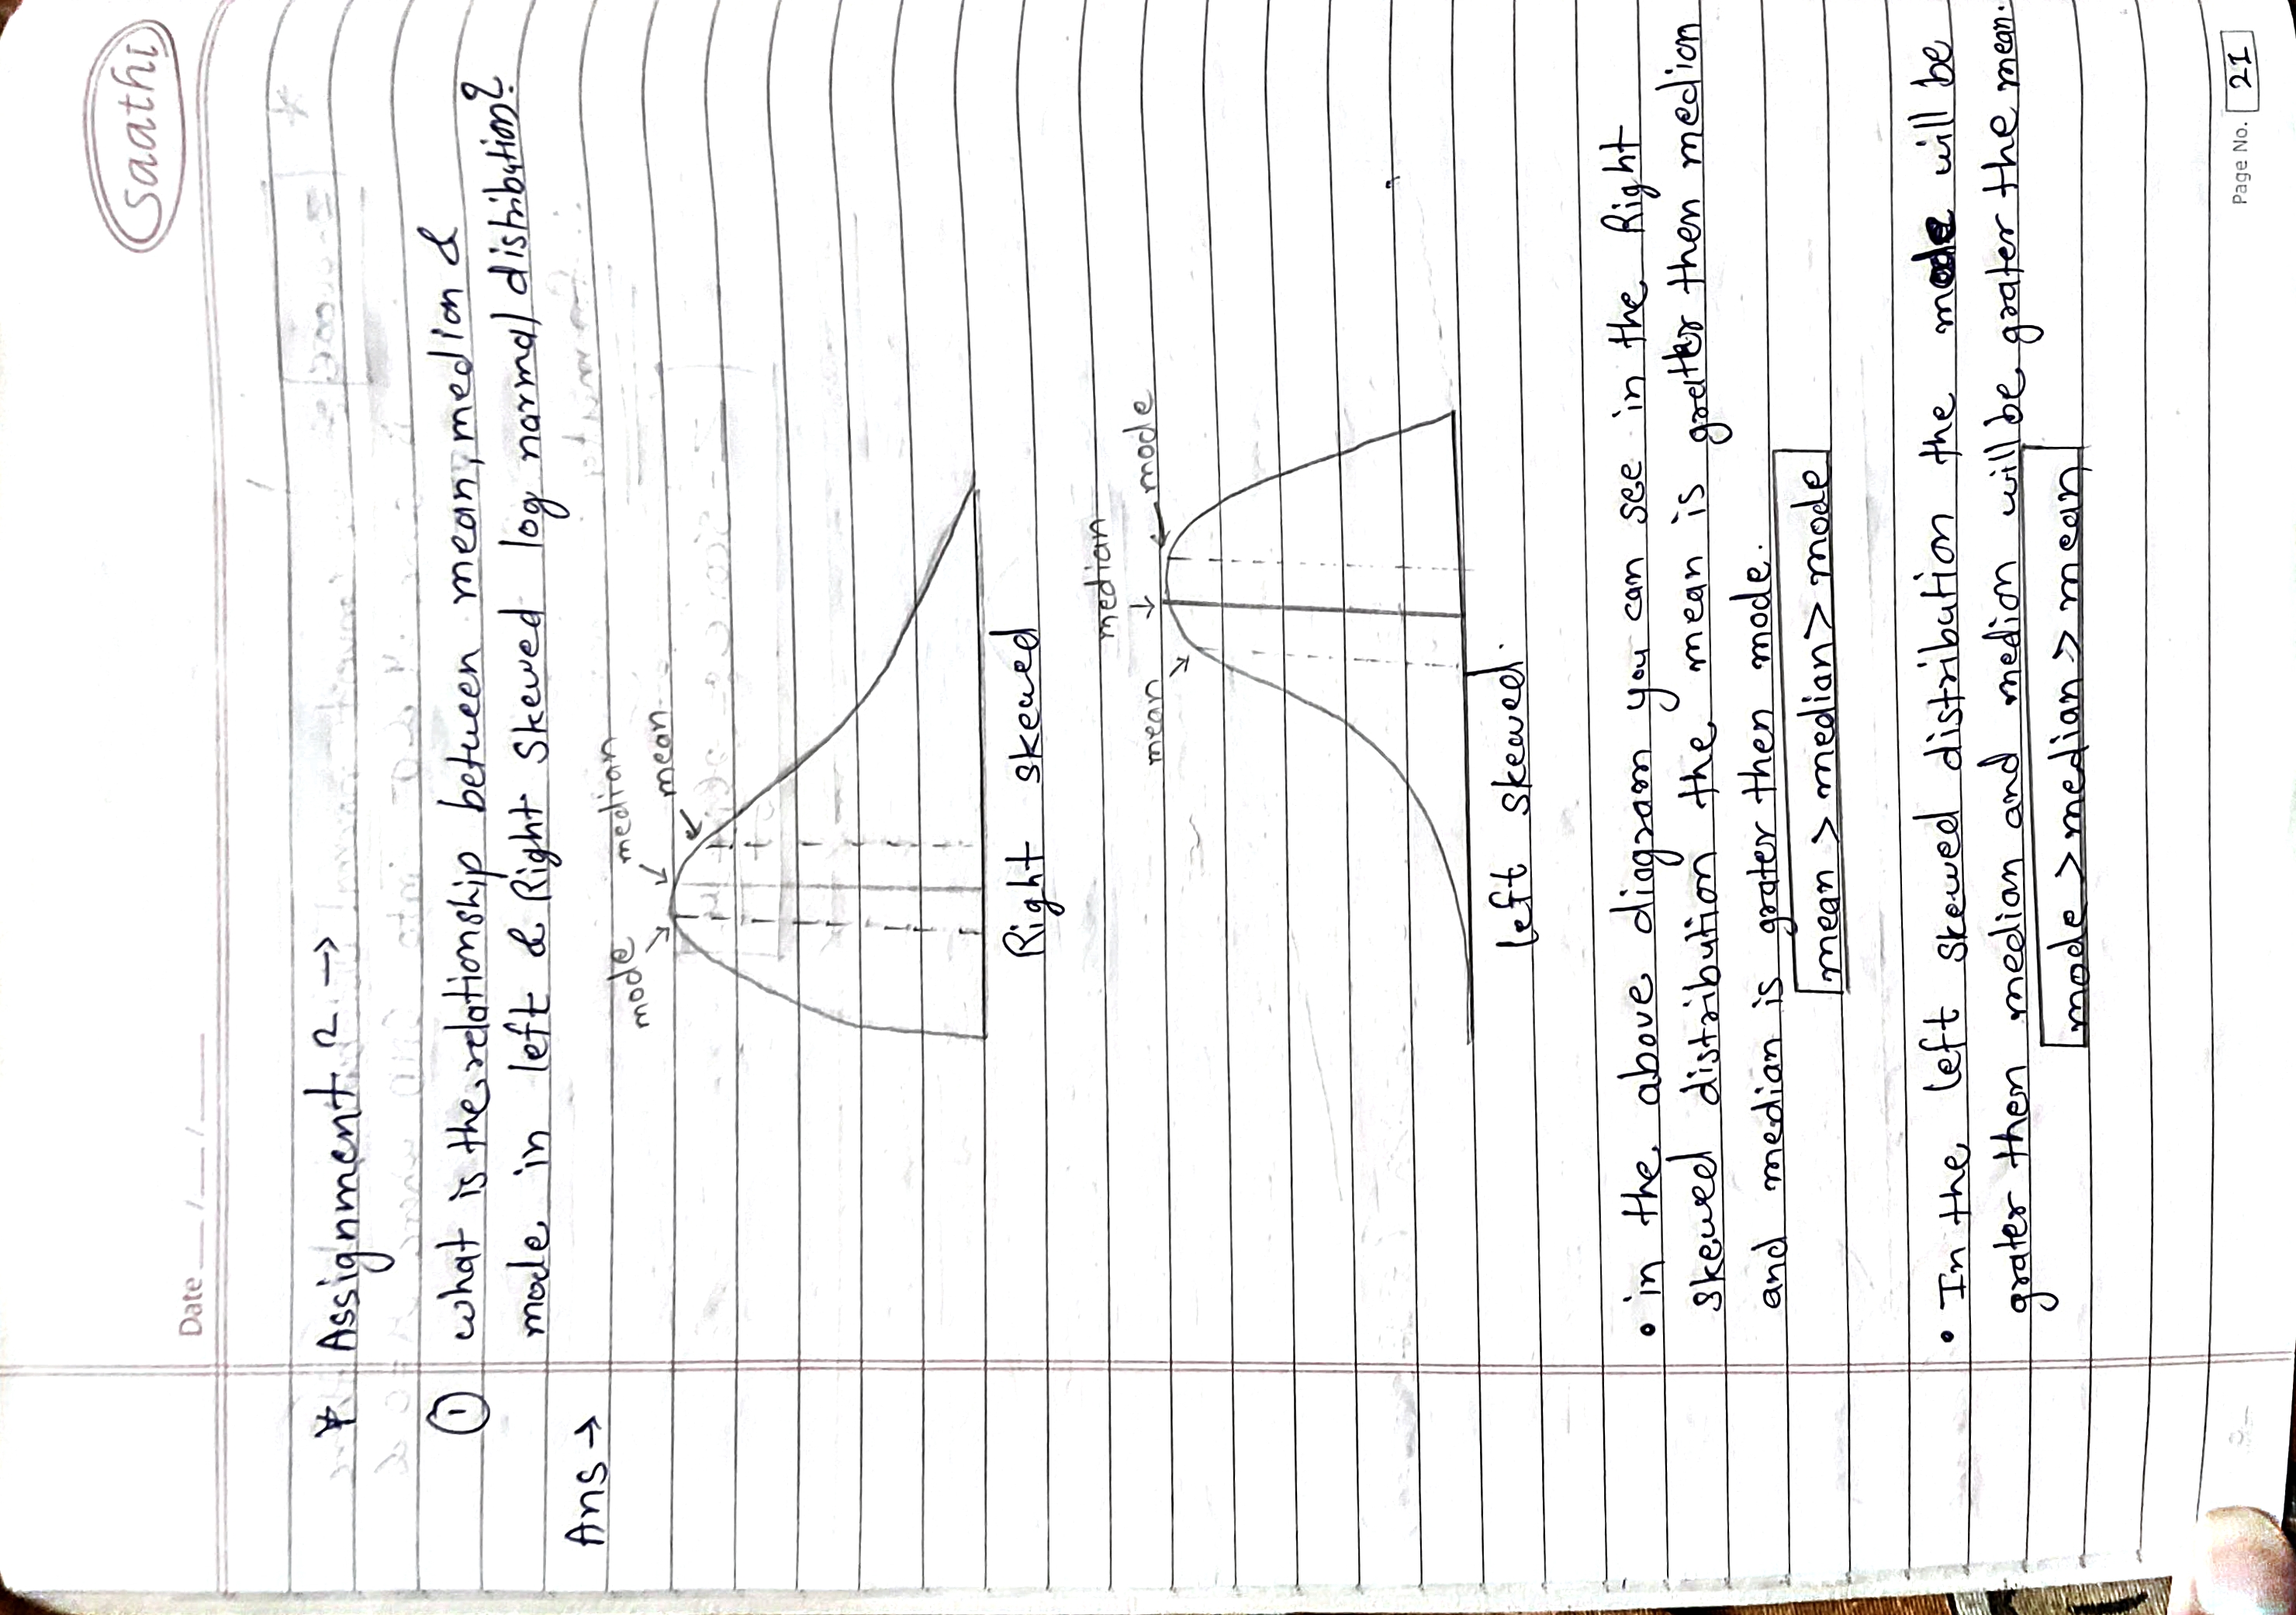 saathi
Date __/__/__
* Assignment 2 →
① what is the relationship between mean, median &
mode in left & Right Skewed log normal distribution?
Ans →
mode median
mean
Right skewed
median
mean mode
left skewed.
• in the above diagram you can see in the Right
skewed distribution the mean is greatter then median
and median is grater then mode.
mean > median > mode
• In the left skewed distribution the mode will be
grater then median and median will be grater the mean.
mode > median > mean
Page No. 21